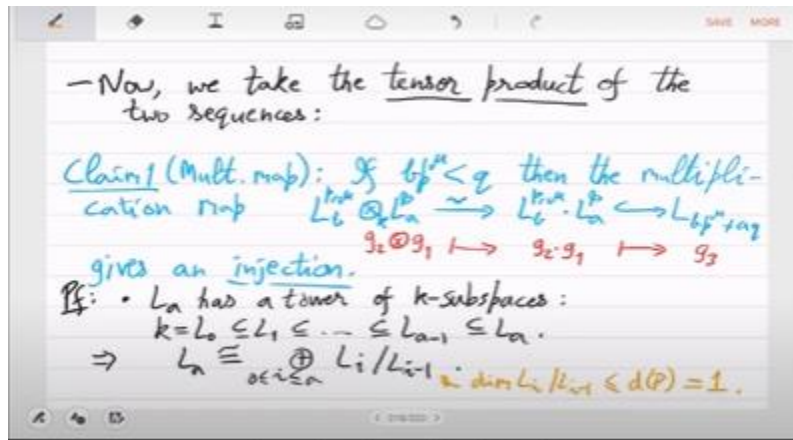 SAVE MORE
- Now, we take the tensor product of the
two sequences:
Claim 1 (Mult. map): If bp^μ < q then the multipli-
cation map L_b^{p^μ} ⊗_k L_a^q ⥲ L_b^{p^μ} · L_a^q ↪ L_{bp^μ+aq}
g₂⊗g₁ ↦ g₂·g₁ ↦ g₃
gives an injection.
Pf: • L_a has a tower of k-subspaces:
k = L₀ ⊆ L₁ ⊆ ... ⊆ L_{a-1} ⊆ L_a.
⇒ L_a ≅ ⊕_{0≤i≤a} L_i/L_{i-1}. & dim L_i/L_{i-1} ≤ d(P) = 1.